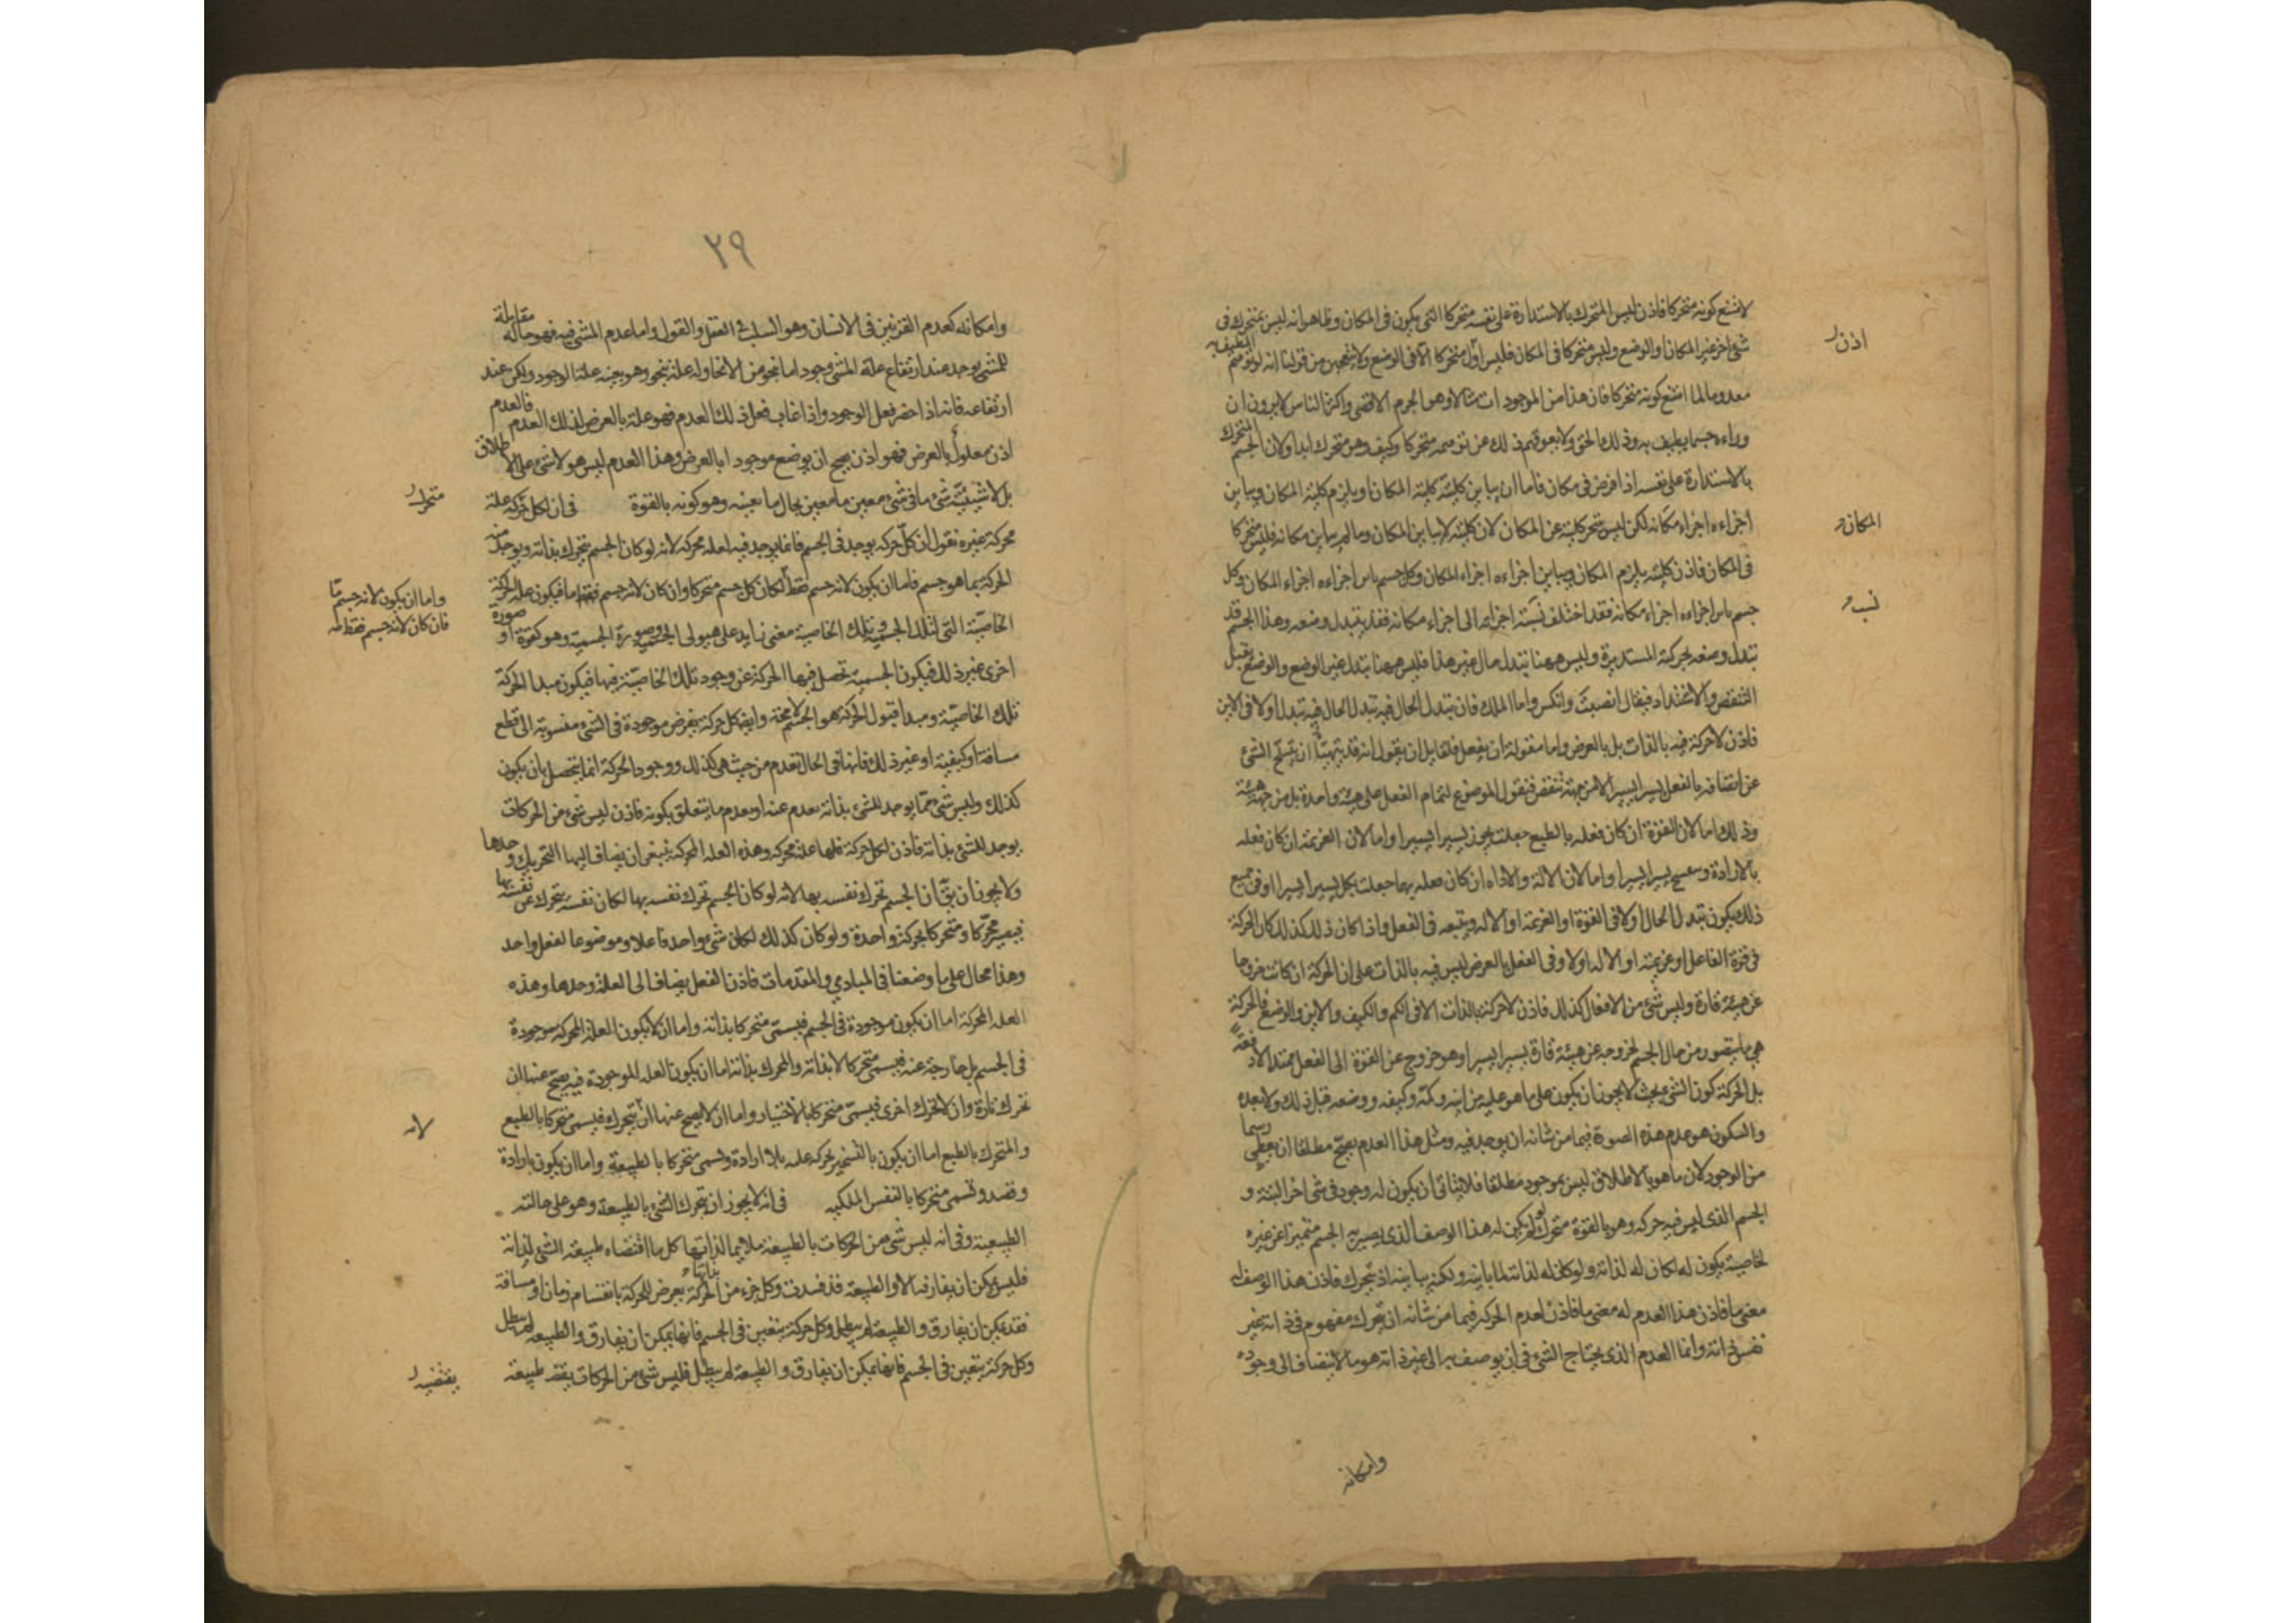 لاشنع كونه متحركا فاذن ليس المتحرك بالاستدارة على نفسه متحركا التى يكون فى المكان وظاهر انه ليس بمتحرك فى
شئ اخر غير المكان او الوضع وليس متحركا فى المكان فليس اول متحركا الا فى الوضع ولا يتعجبن من قولنا انه لو توهم
المطيف به
اذن
معدوما لما امتنع كونه متحركا فان هذا من الموجودات مثالا وهو الجرم الاقصى واكثر الناس لا يرون ان
وراءه جسما يطيف به وذلك الحق ولا يعوقهم ذلك عن توهمه متحركا وكيف وهو متحرك ابدا ولان الجسم
المتحرك
بالاستدارة على نفسه اذا فرض فى مكان فاما ان يباين كليته كلية المكان او يلزم كليته المكان ويباين
اجزاءه اجزاء مكانه لكن ليس يتحرك كليته عن المكان لان كليته لا يباين المكان وما لم يباين مكانه فليس متحركا
المكان
فى المكان فاذن كليته يلزم المكان ويباين اجزاءه اجزاء المكان وكل جسم باين اجزاءه اجزاء المكان وكل
جسم باين اجزاءه اجزاء مكانه فقد اختلف نسبة اجزائه الى اجزاء مكانه فقد يتبدل وضعه وهذا الجسم قد
نسب
تبدل وضعه بحركته المستديرة وليس ههنا يتبدل حال غير هذا فليس ههنا تبدل غير الوضع والوضع يقبل
التنقص والاشتداد فيقال انصب وانكس واما الملك فان تبدل الحال فيه تبدل الحال فيه تبدل اولا فى الاين
فاذن لا حركة فيه بالذات بل بالعرض واما مقولة ان يفعل فلقايل ان يقول انه قد يتهيأ ان يتسلخ الشئ
عن اتصافه بالفعل يسيرا يسيرا لا من جهة تنقص قبول الموضوع لتمام الفعل على هيئة واحدة بل من جهة هيئته
وذلك اما لان القوة ان كان فعله بالطبع جعلت يخور يسيرا يسيرا واما لان العزيمة ان كان فعله
بالارادة يسيرا يسيرا واما لان الالة والاداة ان كان فعله بهما جعلت يكل يسيرا يسيرا وفى جميع
ذلك يكون تبدل الحال اولا فى القوة او العزيمة او الالة ويتبعه فى الفعل واذا كان ذلك كذلك كان الحركة
فى قوة الفاعل او عزيمته او الالة اولا وفى الفعل بالعرض ليس فيه بالذات على ان الحركة ان كانت خروجا
عن هيئة قارة وليس شئ من الافعال كذلك فاذن لا حركة بالذات الا فى الكم والكيف والاين والوضع فالحركة
هى ما يتصور من حال الجسم لخروجه عن هيئة قارة يسيرا يسيرا وهو خروج عن القوة الى الفعل ممتدا لا دفعة
بل الحركة كون الشئ بحيث لا يجوز ان يكون على ما هو عليه من اينه وكمه وكيفه ووضعه قبل ذلك ولا بعده
والسكون هو عدم هذه الصورة فيما من شانه ان يوجد فيه ومثل هذا العدم يصح مطلقا ان يعطى
رسما
من الوجود لان ما هو بالاطلاق ليس بموجود مطلقا فلا يتاتى ان يكون له وجود فى شئ اخر البتة و
الجسم الذى ليس فيه حركة وهو بالقوة متحرك لو لم يكن له هذا الوصف الذى يصير به الجسم متميزا عن غيره
لخاصية يكون له لكان له لذاته ولو كان له لذاته لما باينه ولكنه يباينه اذ يتحرك فاذن هذا الوصف له
معنى ما فاذن هذا العدم له معنى ما فاذن لعدم الحركة فيما من شانه ان يتحرك مفهوم فى ذاته غير
نفس ذاته وانما العدم الذى يحتاج الشئ فى ان يوصف به الى غير ذاته هو ما لا ينضاف الى وجوده
وامكانه
٢٩
وامكانه كعدم القرنين فى الانسان وهو السلب فى العقل والقول واما عدم المشى فيه فهو حالة مقابلة
للمشى يوجد عند ارتفاع علة المشى وجودا ما بنحو من الانحاء وله علة بنحو وهو بعينه علة الوجود ولكن عند
ارتفاعه فانه اذا حضر فعل الوجود واذا غاب فعل ذلك العدم فهو علة بالعرض لذلك العدم فالعدم
اذن معلول بالعرض فهو اذن يصح ان يوضع موجودا بالعرض وهذا العدم ليس هو لا شئ على الاطلاق
بل لا شيئية شئ ما فى شئ معين ما معين بحال ما بعينه وهو كونه بالقوة فى ان لكل حركة علة
متحرك
محركة غيره نقول ان كل حركة يوجد فى الجسم فانما يوجد فيه لعلة محركة لانه لو كان الجسم يتحرك بذاته ويوجد منه
الحركة بما هو جسم فاما ان يكون لانه جسم فقط لكان كل جسم متحركا وان كان لانه جسم ما فيكون علة الحركة
واما ان يكون لانه جسم ما
فان كان لانه جسم فقط
الخاصية التى لتلك الجسمية وتلك الخاصية معنى زايد على هيولى الجسمية وصورة الجسمية وهو كقوة او صورة
اخرى غير ذلك فيكون الجسمية تحصل فيها الحركة عن وجود تلك الخاصية فيها فيكون مبدا الحركة
تلك الخاصية ومبدا قبول الحركة هو الجسم لا محة وايضا كل حركة يفرض موجودة فى الشئ منسوبة الى قطع
مسافة او كيفية او غير ذلك فانها فى الحال تعدم من حيث هى كذلك ووجود الحركة انما يتحصل بان يكون
كذلك وليس شئ مما يوجد للشئ بذاته يعدم عنه او بعدم ما يتعلق بكونه فاذن ليس شئ من الحركات
يوجد للشئ بذاته فاذن لكل حركة فلها علة محركة وهذه العلة المحركة ينبغى ان يضاف اليها التحريك وحدها
ولا يجوز ان يقٓ ان الجسم تحرك نفسه بها لانه لو كان الجسم تحرك نفسه بها لكان نفسه يتحرك عن نفسه بها
فيصير محركا ومتحركا بحركة واحدة ولو كان كذلك لكان شئ واحد فاعلا وموضوعا لفعل واحد
وهذا محال على ما وضعنا فى المبادى والمقدمات فاذن الفعل يضاف الى العلة وحدها وهذه
العلة المحركة اما ان يكون موجودة فى الجسم فيسمى متحركا بذاته واما ان لا يكون العلة المحركة موجودة
فى الجسم بل خارجة عنه فيسمى متحركا لا بذاته والمحرك بذاته اما ان يكون العلة الموجودة فيه يصح عنها ان
تحرك تارة وان لا تحرك اخرى فيسمى متحركا بالاختيار واما ان لا يصح عنها ان لا يتحرك فيسمى متحركا بالطبع
لانه
والمتحرك بالطبع اما ان يكون بالتسخير لحركة علته بلا ارادة ويسمى متحركا بالطبيعة واما ان يكون بارادة
وقصد وتسمى متحركا بالنفس الملكيه فى انه لا يجوز ان يتحرك الشئ بالطبيعة وهو على حالته
الطبيعية وفى انه ليس شئ من الحركات بالطبيعة ملايما لذاتها كل ما اقتضاه طبيعة الشئ لذاته
فليس يمكن ان يفارقه الا والطبيعة قد فسدت وكل جزء من الحركة يعرض للحركة بانقسام زمان او مسافة
فقد يمكن ان يفارق والطبيعة لم يبطل وكل حركة يتعين فى الجسم فانها يمكن ان يفارق والطبيعة لم يبطل
وكل حركة يتعين فى الجسم فانها يمكن ان يفارق والطبيعة لم يبطل فليس شئ من الحركات بقتض طبيعة
يقتضيه